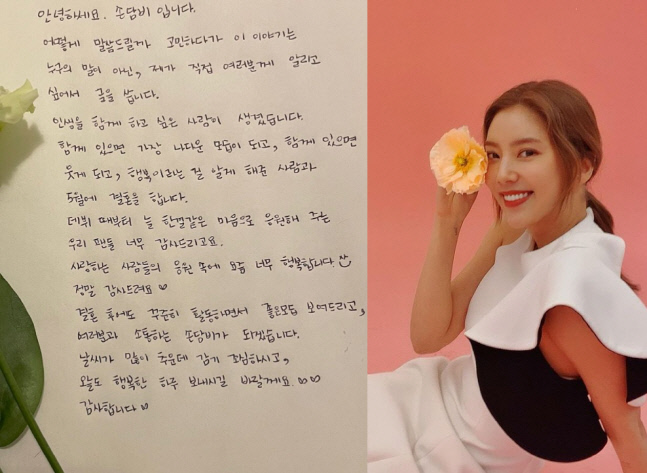 안녕하세요. 손담비 입니다.
어떻게 말씀드릴까 고민하다가 이 이야기는
누구의 말이 아닌, 제가 직접 여러분께 알리고
싶어서 글을 씁니다.
인생을 함께 하고 싶은 사람이 생겼습니다.
함께 있으면 가장 나다운 모습이 되고, 함께 있으면
웃게 되고, 행복이라는 걸 알게 해준 사람과
5월에 결혼을 합니다.
데뷔 때부터 늘 한결같은 마음으로 응원해 주는
우리 팬들 너무 감사드리고요.
사랑하는 사람들의 응원 속에 요즘 너무 행복합니다.
정말 감사드려요♡
결혼 후에도 꾸준히 활동하면서 좋은모습 보여드리고,
여러분과 소통하는 손담비가 되겠습니다.
날씨가 많이 추운데 감기 조심하시고,
오늘도 행복한 하루 보내시길 바랄게요 ♡♡
감사합니다♡